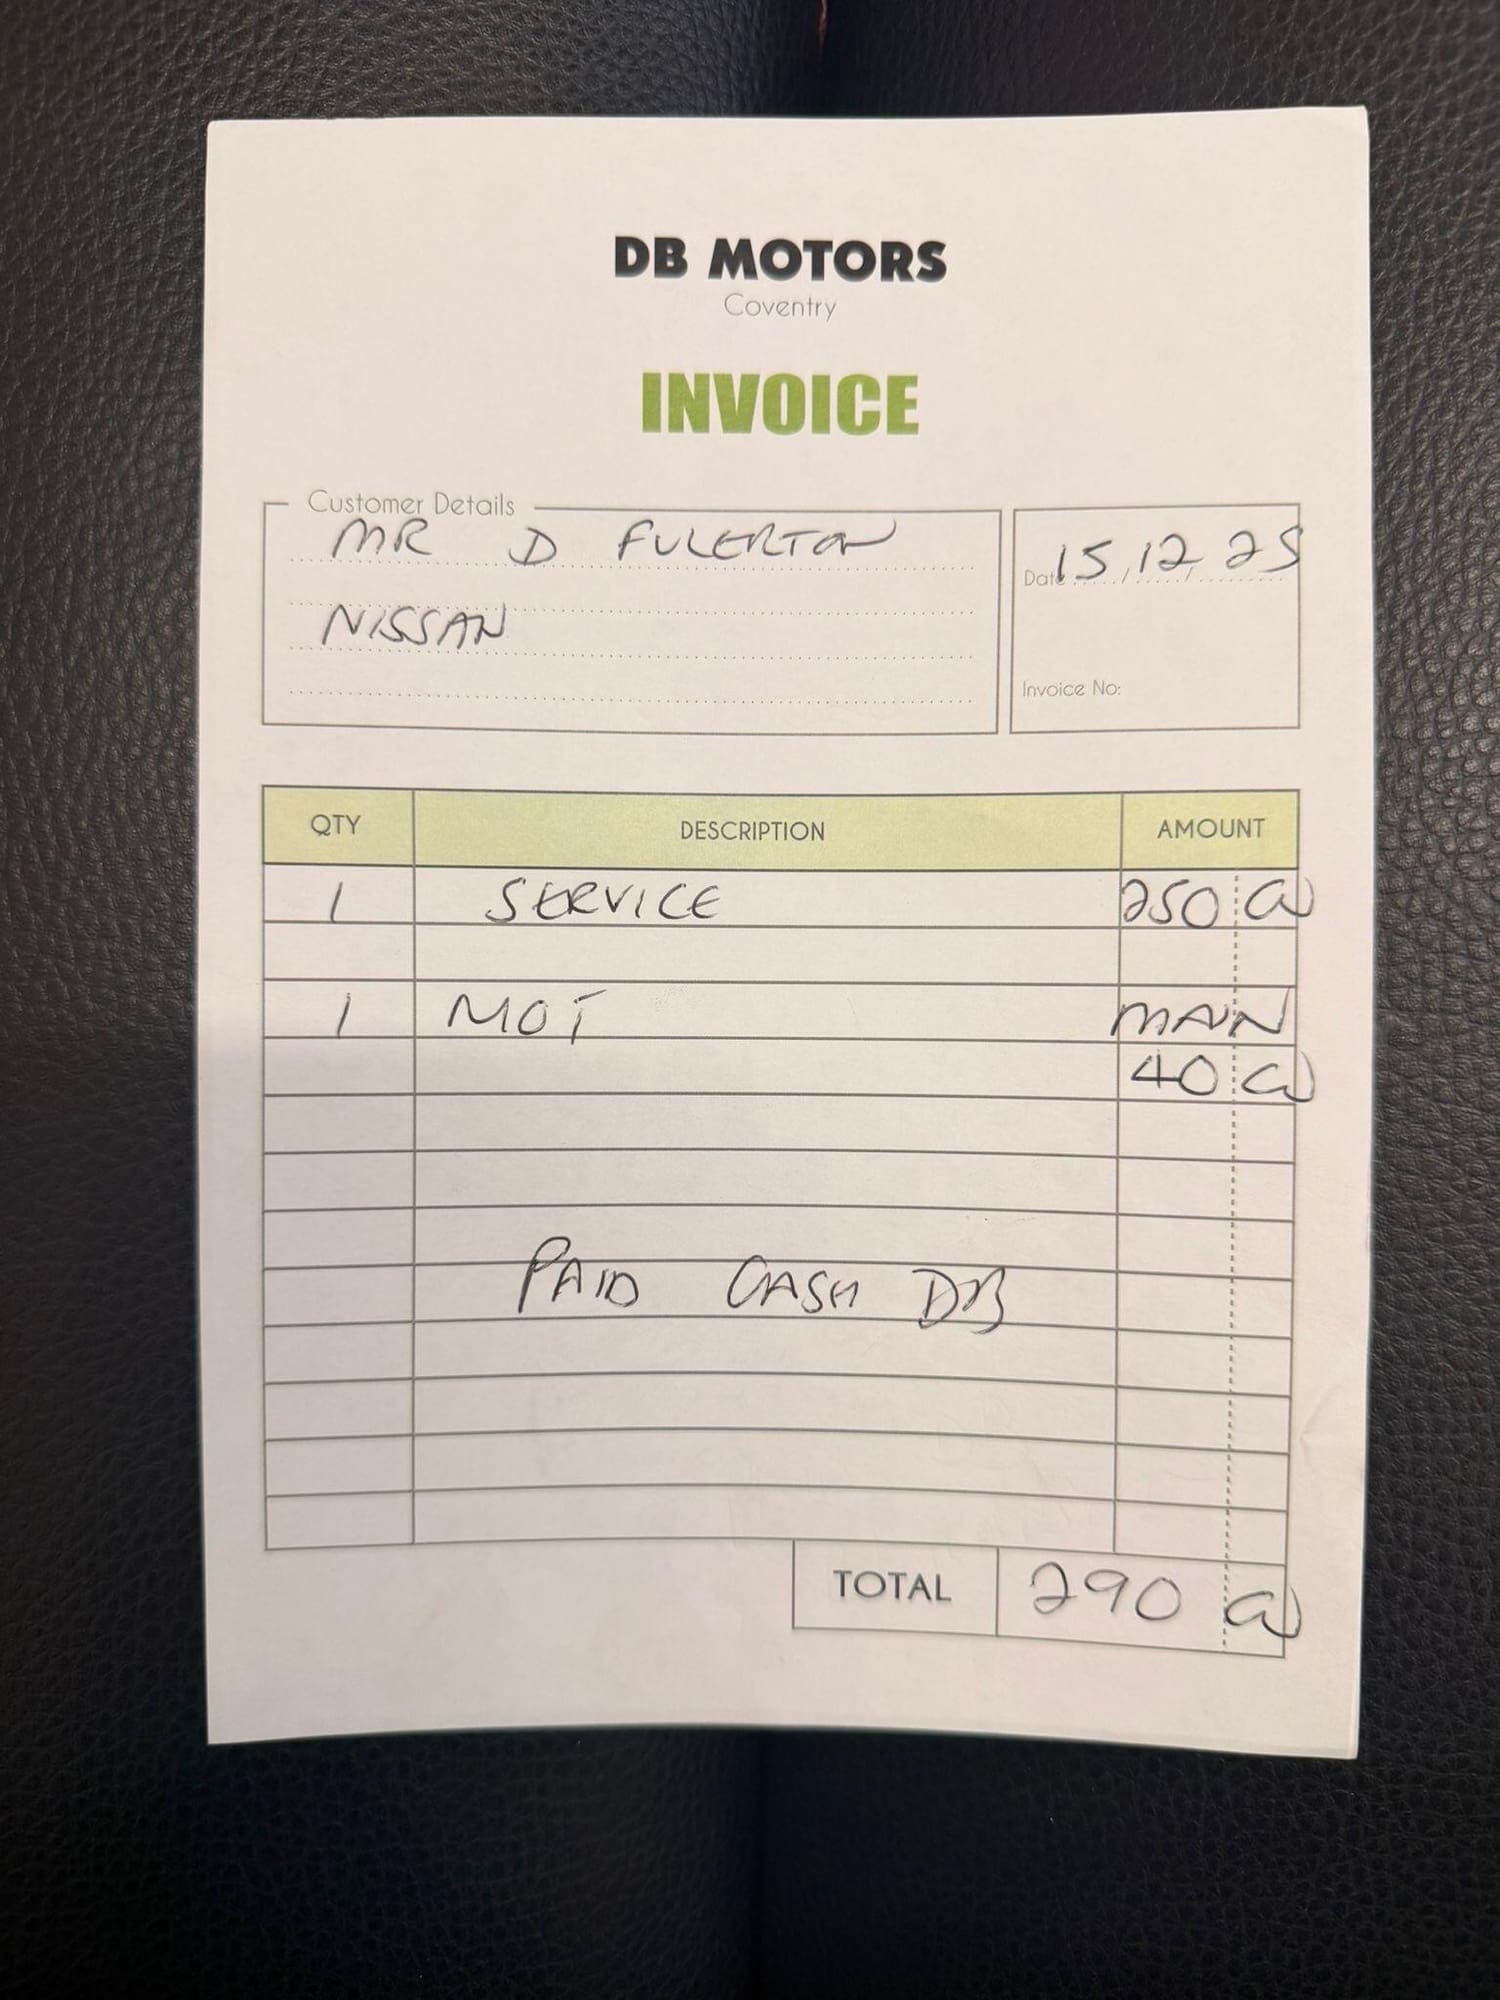 DB MOTORS
Coventry
INVOICE
Customer Details
MR D FULERTON
NISSAN
Date 15/12/25
Invoice No:
QTY DESCRIPTION AMOUNT
1 SERVICE 250 00
1 MOT MAIN
40 00
PAID CASH DB
TOTAL 290 00